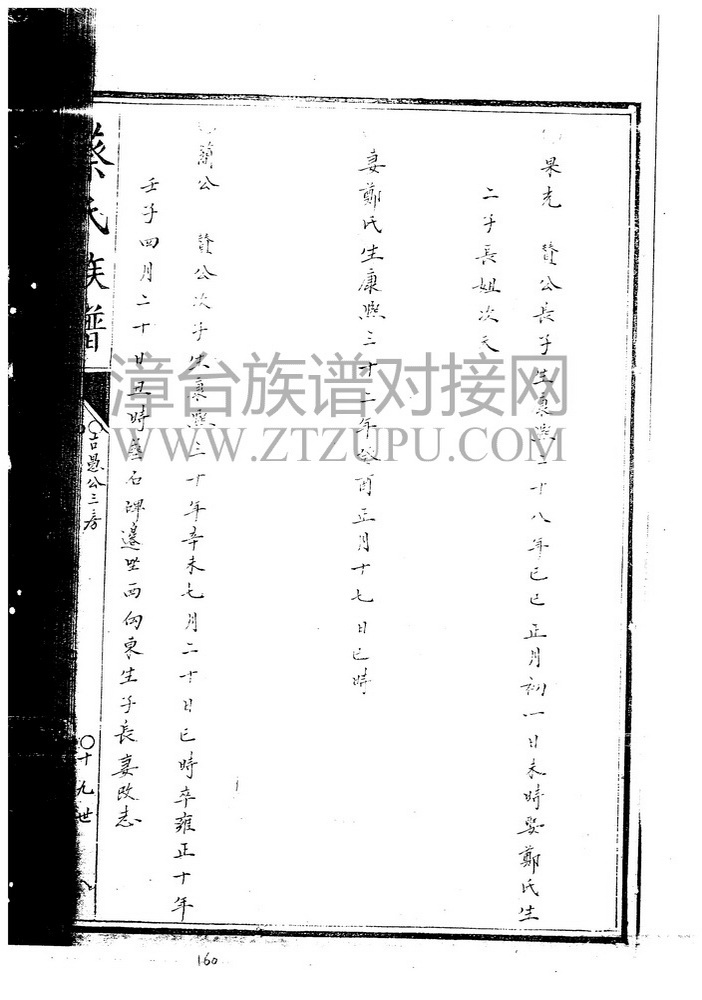 果克 贊公長子生康熙二十八年己巳正月初一日未時娶鄭氏生
二子長姐次天
妻鄭氏生康熙三十二年癸酉正月十七日巳時
蘭公 贊公次子生康熙三十年辛未七月二十日巳時卒雍正十年
壬子四月二十廿丑時葬石碑邊坐西向東生子長妻改志
蔡氏族譜
吉愚公三房
十九世
漳台族谱对接网
WWW.ZTZUPU.COM
160